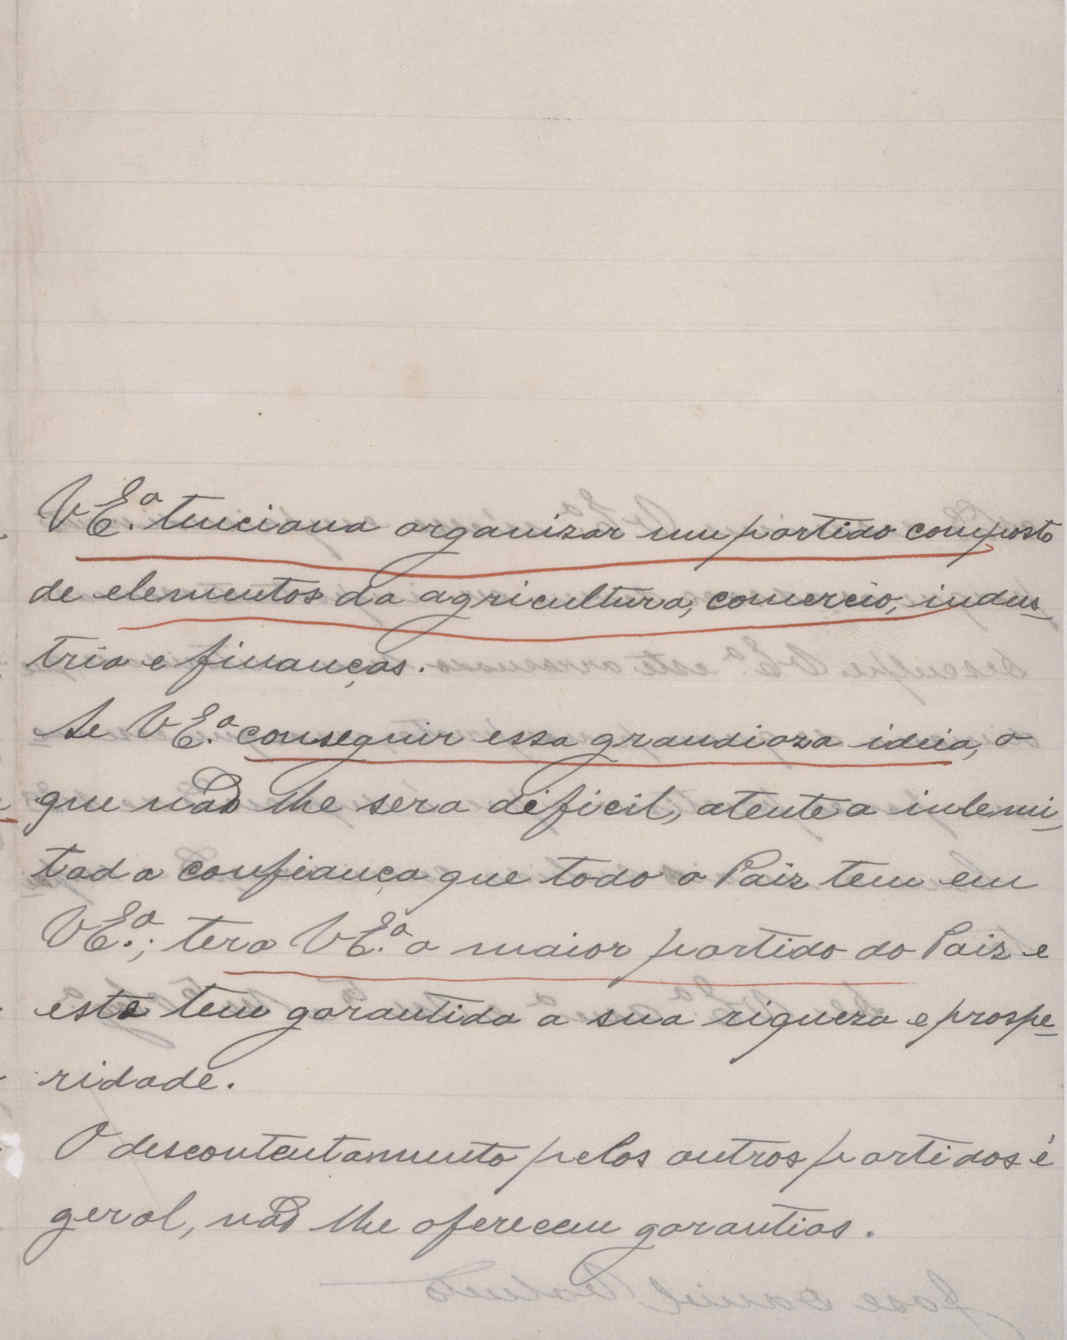 V E.ª tenciona organizar um partido composto
de elementos da agricultura, comercio, indus_
tria e finanças.
Se V E.ª conseguir essa grandioza ideia, o
que não lhe sera dificil, atente a inlemi_
tada confiança que todo o Paiz tem em
V E.ª; tera V E.ª o maior partido do Paiz e
este tem garantida a sua riqueza e prospe_
ridade.
O descontentamento pelos outros partidos é
geral, não lhe oferecem garantias.